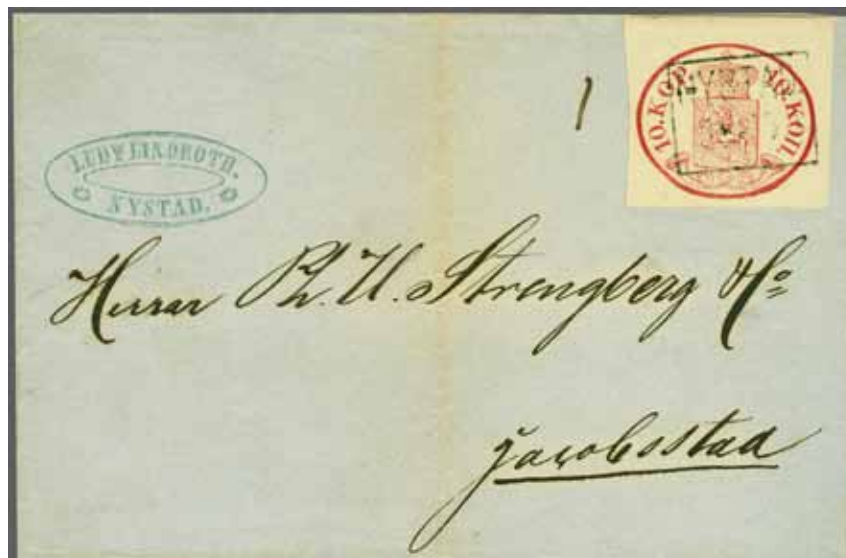 LUDV LINDROTH.
NYSTAD.
10.KOP. 10.КОП.
Herrar Ph. U. Strengberg & Co
Jacobsstad